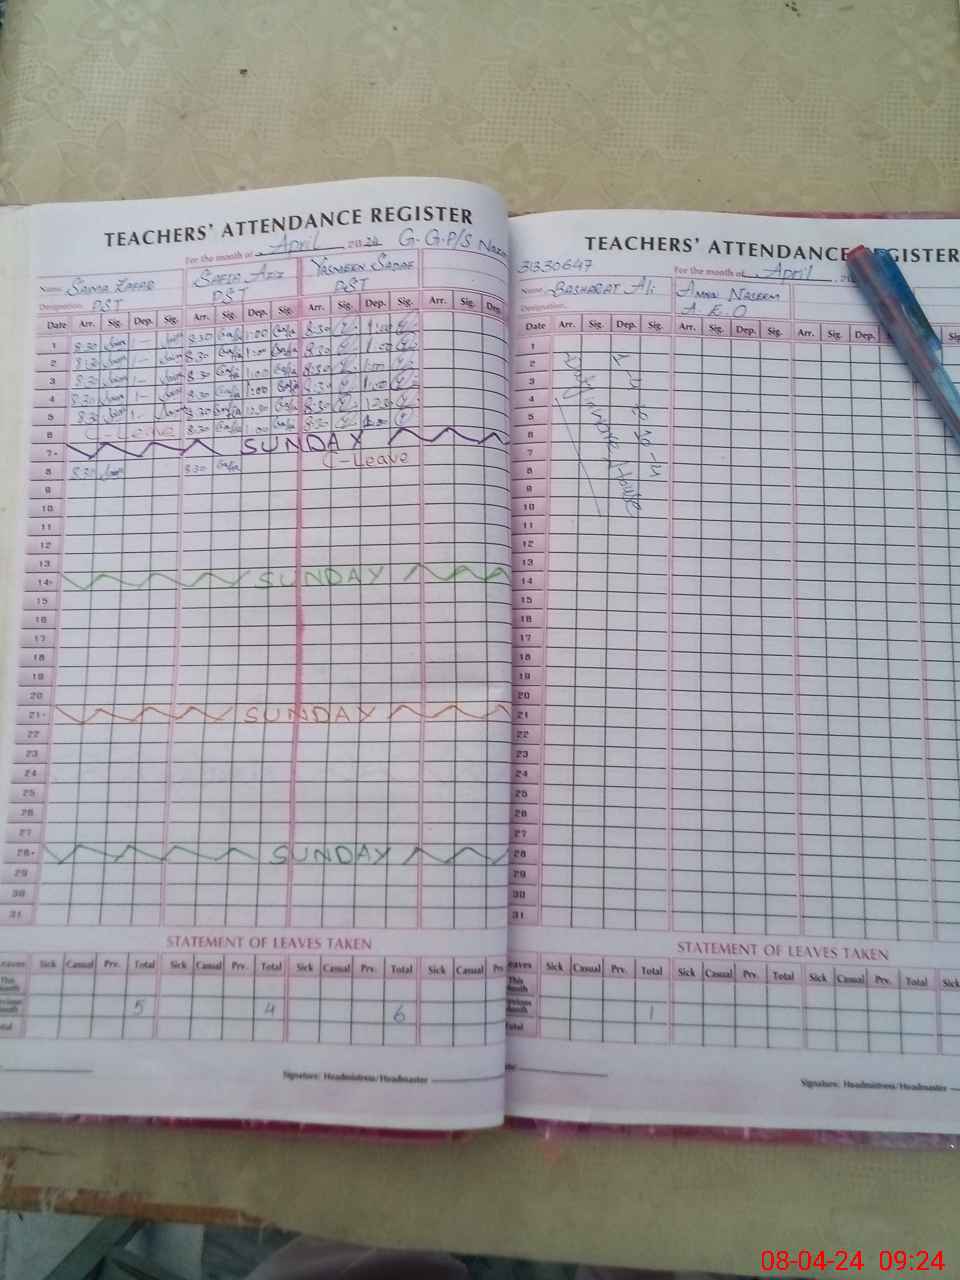 TEACHERS' ATTENDANCE REGISTER
For the month of April 2024 G.G.P/S
Name Saima Zafar Safia Aziz Yasmeen Sadaf
Designation PST PST PST
Date Arr. Sig. Dep. Sig. Arr. Sig. Dep. Sig. Arr. Sig. Dep. Sig. Arr. Sig. Dep.
1 8:30 1- 8:30 1:00 8:30 1:00
2 8:30 1- 8:30 1:00 8:30 1:00
3 8:30 1- 8:30 1:00 8:30 1:00
4 8:30 1- 8:30 1:00 8:30 1:00
5 8:30 1- 8:30 12:30 8:30 12:30
6 C-Leave 8:30 1:00 8:30
7 SUNDAY
8 8:30 8:30 C-Leave
9
10
11
12
13
14 SUNDAY
15
16
17
18
19
20
21 SUNDAY
22
23
24
25
26
27
28 SUNDAY
29
30
31
STATEMENT OF LEAVES TAKEN
Leaves Sick Casual Prv. Total Sick Casual Prv. Total Sick Casual Prv. Total Sick Casual
This Month
Previous Month 5 4 6
Total
Signature: Headmistress/Headmaster
TEACHERS' ATTENDANCE REGISTER
31330647 For the month of April
Name Basharat Ali Naseem
Designation
Date Arr. Sig. Dep. Sig. Arr. Sig. Dep. Sig. Arr. Sig. Dep.
1
2
3
4
5
6
7
8
9
10
11
12
13
14
15
16
17
18
19
20
21
22
23
24
25
26
27
28
29
30
31
STATEMENT OF LEAVES TAKEN
Leaves Sick Casual Prv. Total Sick Casual Prv. Total Sick Casual Prv. Total Sick
This Month
Previous Month 1
Total
Signature: Headmistress/Headmaster
08-04-24 09:24